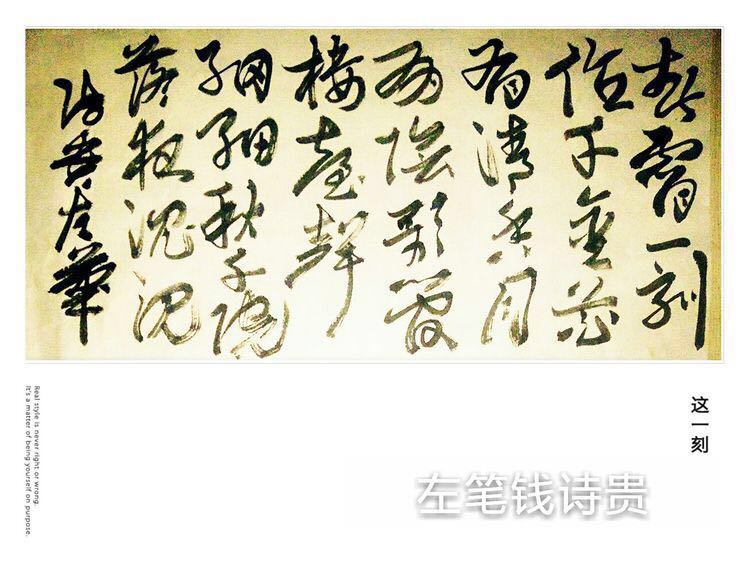 春宵一刻
值千金花
有清香月
有陰歌管
樓臺聲
細細秋千院
落夜沉沉
左筆
这一刻
左笔钱诗贵
Real style is never right or wrong.
It's a matter of being yourself on purpose.